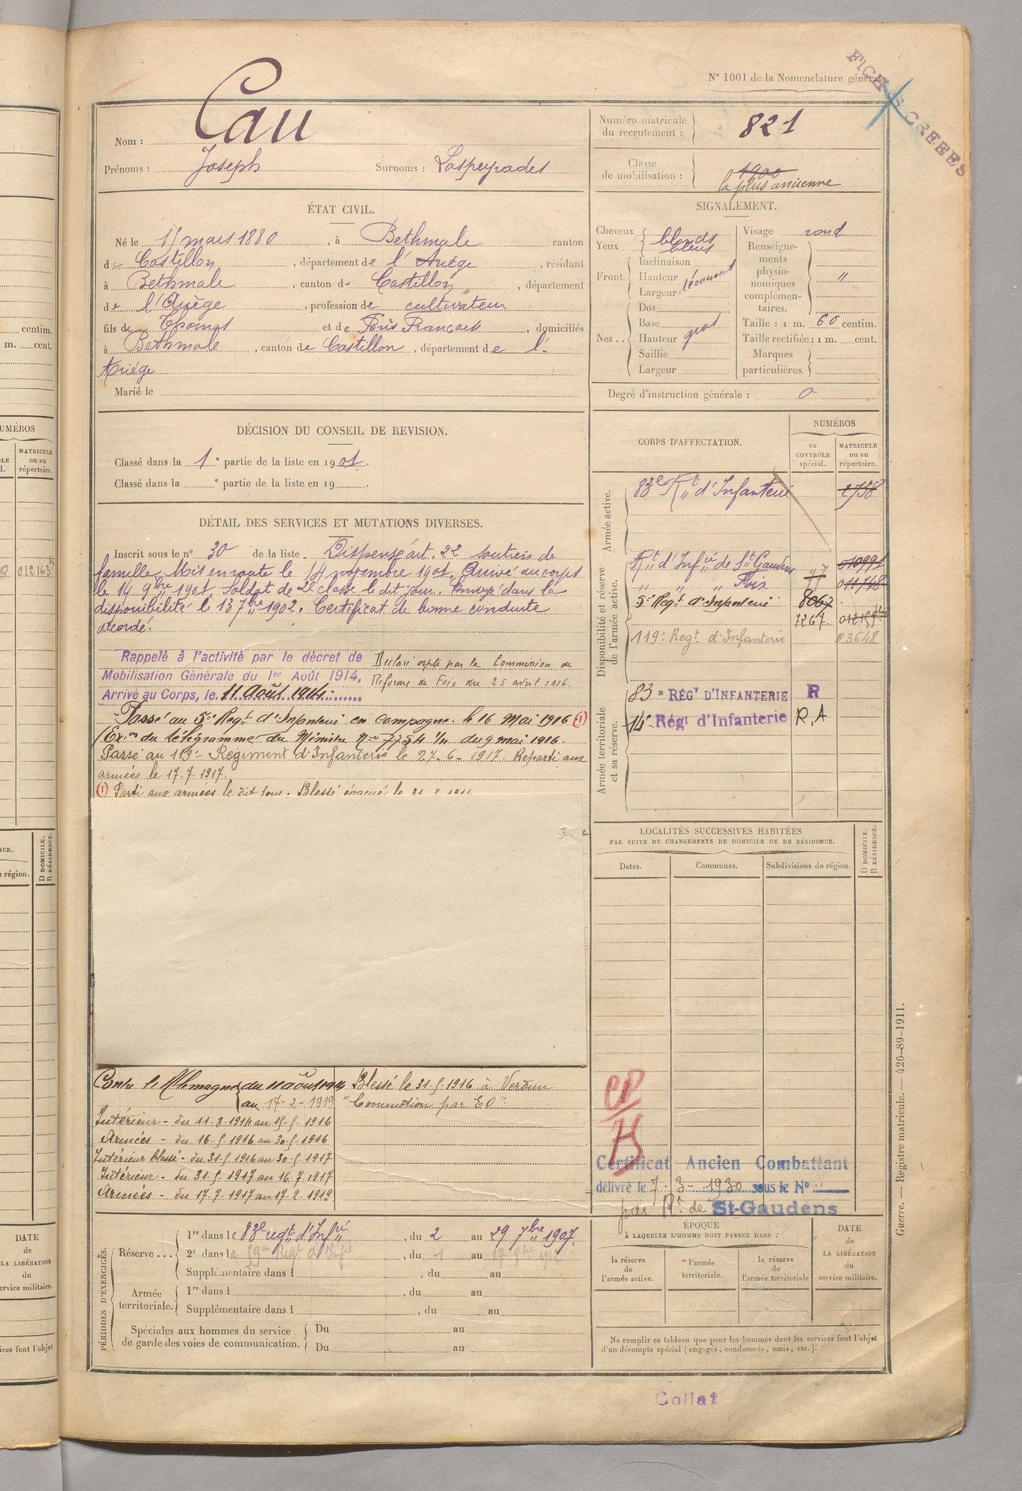 N° 1001 de la Nomenclature
FICHES CREEES
Nom : Cau
Prénoms : Joseph Surnoms : Laspeyrades
Numéro matricule du recrutement : 821
Classe de mobilisation : 1900
la plus ancienne
ÉTAT CIVIL.
Né le mars 1880, à Bethmale canton
de Castillon, département de l'Ariège, résidant
à Bethmale, canton de Castillon, département
de l'Ariège, profession de cultivateur
fils de Thomas et de Françoise, domiciliés
à Bethmale, canton de Castillon, département de l'
Ariège
Marié le
SIGNALEMENT.
Cheveux blonds
Yeux bleus
Front.
Inclinaison
Hauteur
Largeur
Nez..
Dos
Base
Hauteur gros
Saillie
Largeur
Visage rond
Renseignements physionomiques complémentaires. "
Taille : 1 m. 60 centim.
Taille rectifiée : 1 m. cent.
Marques particulières.
Degré d'instruction générale : 0
DÉCISION DU CONSEIL DE REVISION.
Classé dans la 1e partie de la liste en 1901.
Classé dans la e partie de la liste en 19
DÉTAIL DES SERVICES ET MUTATIONS DIVERSES.
Inscrit sous le n° 30 de la liste. Dispensé art. 22 soutien de
famille. Mis en route le 14 novembre 1901. Arrivé au corps
le 14 9bre 1901, soldat de 2e classe le dit jour. Envoyé dans la
disponibilité le 1902. Certificat de bonne conduite
accordé.
Rappelé à l'activité par le décret de
Mobilisation Générale du 1er Août 1914,
Arrivé au Corps, le 11 Août 1914
par la Commission de
Réforme de Foix du 25 avril 1916
Passé au 5e Regt d'Infanterie en campagne le 16 Mai 1916 (1)
(Exon du télégramme du Ministre du 9 mai 1916.
Passé au 119e Régiment d'Infanterie le 27-6-1917. Reparti aux
armées le 17.7.1917.
(1) Parti aux armées le dit jour. Blessé évacué le
CORPS D'AFFECTATION.
NUMÉROS
au CONTRÔLE spécial.
MATRICULE ou au répertoire.
Armée active.
83e Rt d'Infanterie 2758
Disponibilité et réserve de l'armée active.
Rt d'Infrie de St Gaudens
" " " Foix
5e Regt d'Infanterie 8067
7267
119e Regt d'Infanterie 3648
Armée territoriale et sa réserve.
83e RÉGt D'INFANTERIE R
14e Régt d'Infanterie R.A
LOCALITÉS SUCCESSIVES HABITÉES
PAR SUITE DE CHANGEMENTS DE DOMICILE OU DE RÉSIDENCE.
Dates. Communes. Subdivisions de région. D DOMICILE, R RÉSIDENCE.
Contre l'Allemagne du 11 août 1914
au 17-2-1919
Intérieur - du 11-8-1914 au 15-5-1916
Armées - du 16-5-1916 au 30-5-1916
Intérieur blessé - du 31-5-1916 au 30-5-1917
Intérieur - du 31-5-1917 au 16-7-1917
Armées - du 17-7-1917 au 17-2-1919
Blessé le 31-5-1916 à Verdun
"Commotion par E.O"
Certificat Ancien Combattant
délivré le 7-3-1930 sous le N°
par Rt de St-Gaudens
PÉRIODES D'EXERCICES.
Réserve...
1re dans le 83e regt d'Infie, du 2 au 29 7bre 1907.
2e dans le 59e Regt d'Infie, du 1 au
Supplémentaire dans l , du au
Armée territoriale.
1re dans l , du au
Supplémentaire dans l , du au
Spéciales aux hommes du service de garde des voies de communication.
Du au
Du au
ÉPOQUE
À LAQUELLE L'HOMME DOIT PASSER DANS :
la réserve de l'armée active.
l'armée territoriale.
la réserve de l'armée territoriale
DATE DE LA LIBÉRATION du service militaire.
Ne remplir ce tableau que pour les hommes dont les services font l'objet
d'un décompte spécial (engagés, condamnés, omis, etc.).
Guerre. — Registre matricule. — 426-89-1911.
Collat